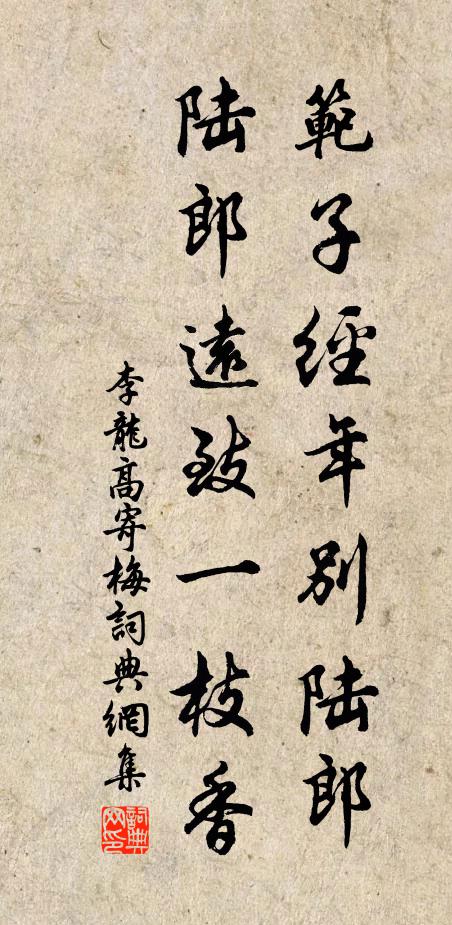 範子經年別陆郎
陆郎遠致一枝香
李龍高寄梅詞典網集
詞典網印